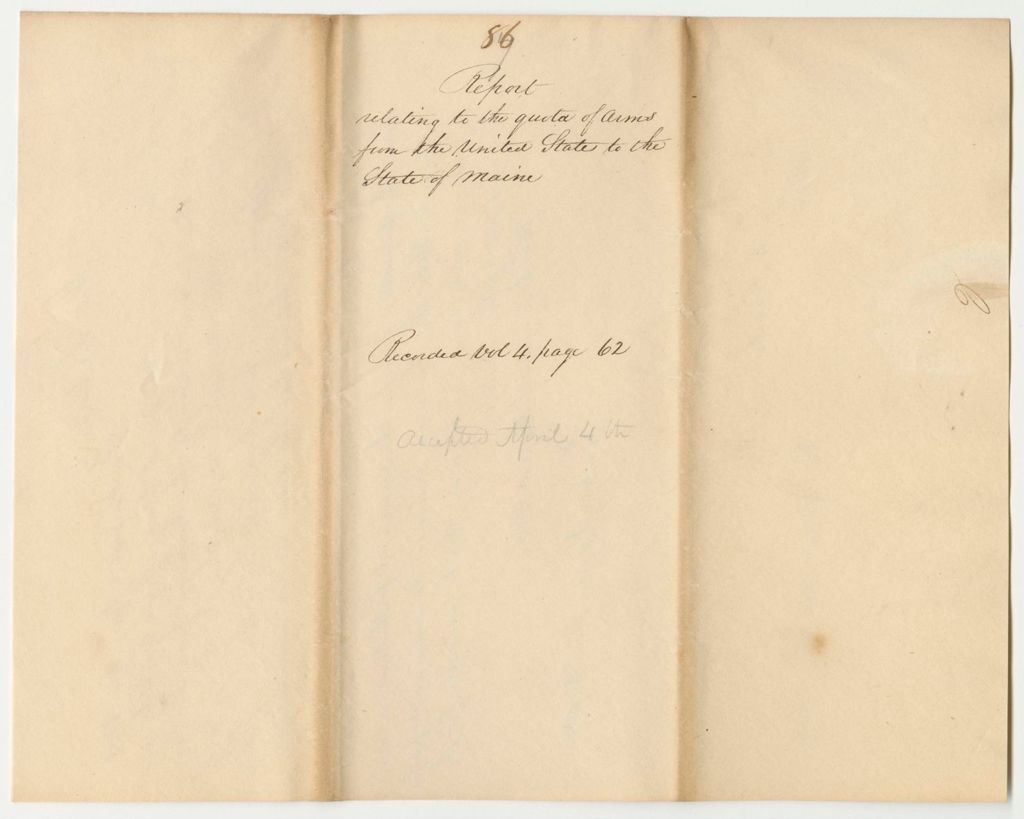 86
Report
relating to the quota of arms
from the United States to the
State of Maine
Recorded Vol 4. page 62
Accepted April 4th